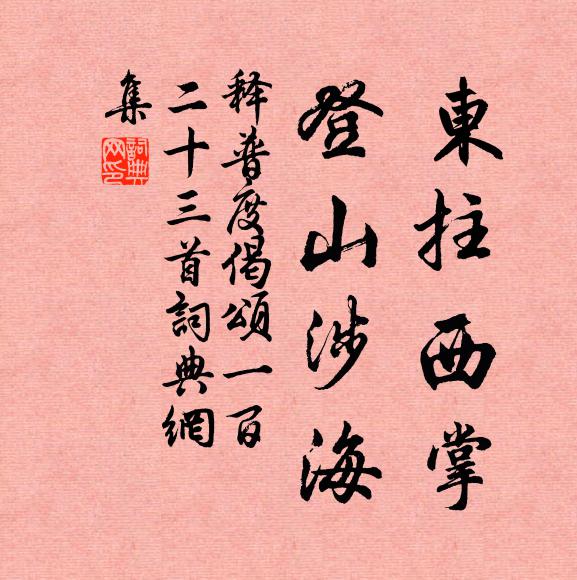 東拄西掌
登山涉海
释普度偈頌一百
二十三首詞典網
集
詞典網印